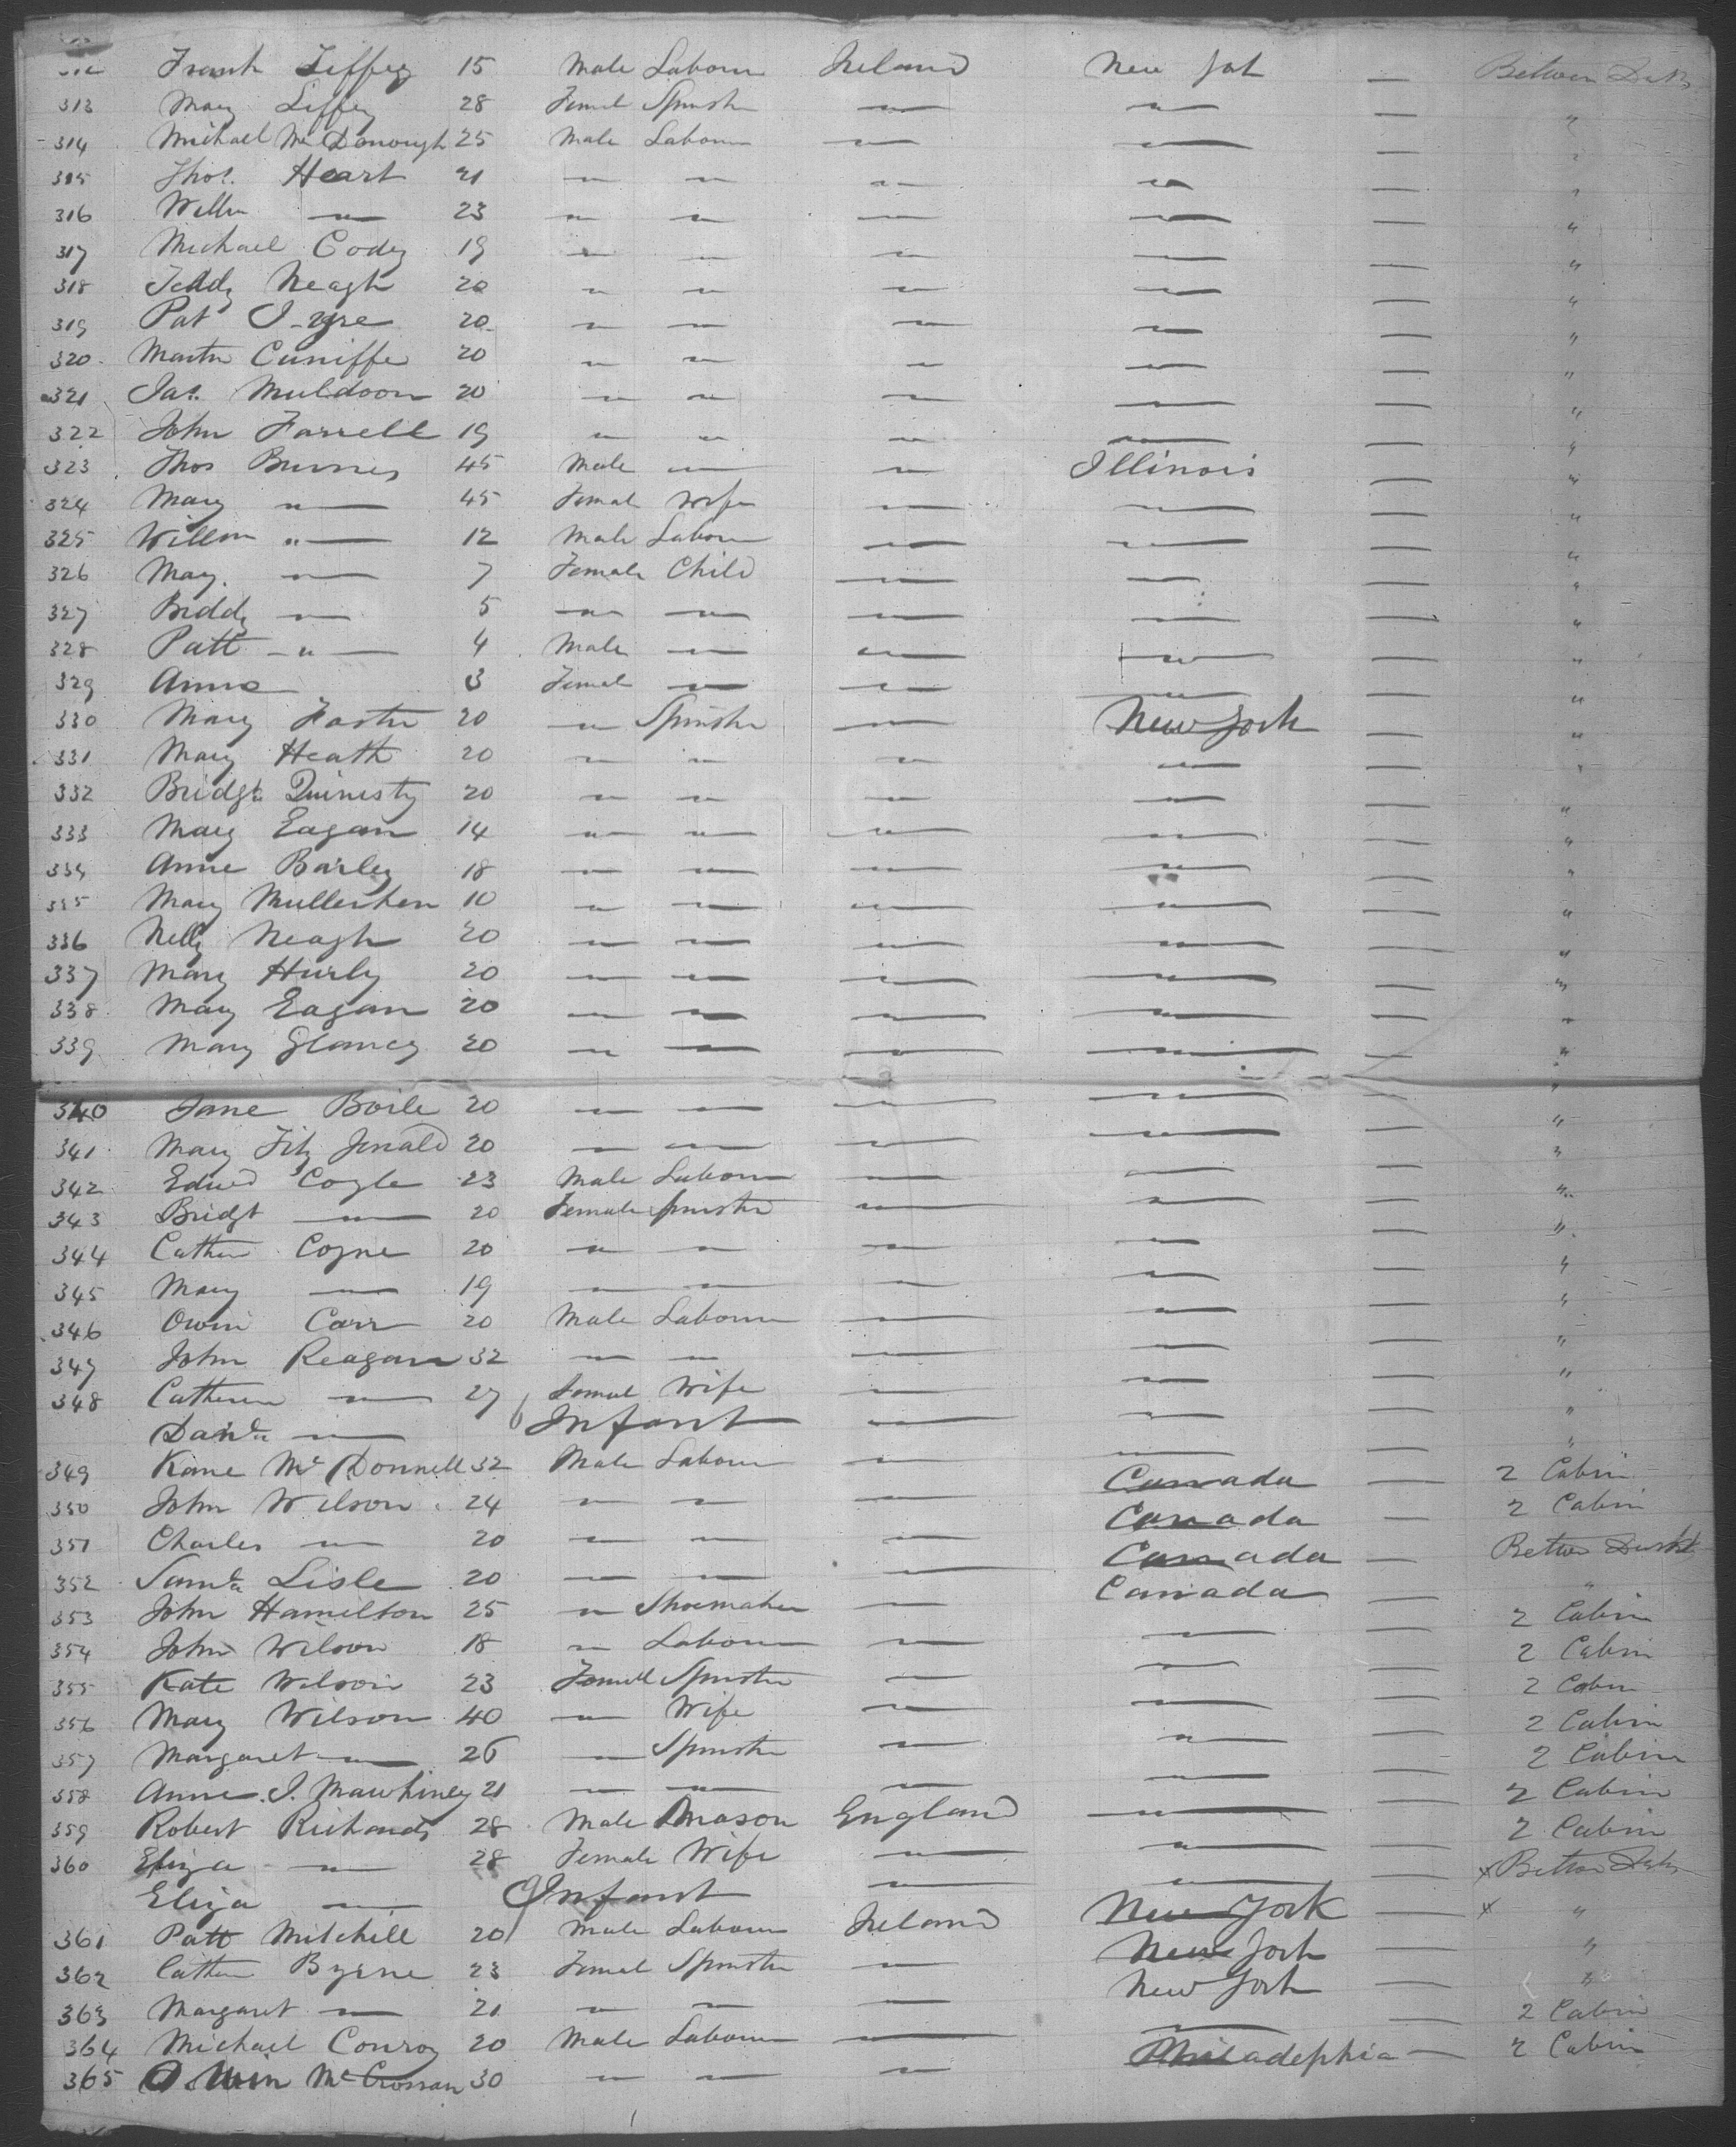 Frank Liffey 15 Male Labour Ireland New York — Between Decks
313 Mary Liffey 28 Femal Spinster " " — "
314 Michael McDonough 25 Male Labour " " — "
315 Thos. Heart 21 " " " " — "
316 Willm " 23 " " " " — "
317 Michael Codey 19 " " " " — "
318 Teddy Neagh 20 " " " " — "
319 Pat 20 " " " " — "
320 Martin Cuniffe 20 " " " " — "
321 Jas. Muldoon 20 " " " " — "
322 John Farrell 19 " " " " — "
323 Thos Burnes 45 Male " " Illinois — "
324 Mary " 45 Femal Wife " " — "
325 Willm " 12 Male Labour " " — "
326 Mary " 7 Female Child " " — "
327 Biddy " 5 " " " " — "
328 Patt " 4 Male " " " — "
329 Anne 3 Femal " " " — "
330 Mary Foster 20 " Spinster " New York — "
331 Mary Heath 20 " " " " — "
332 Bridgt Quinisty 20 " " " " — "
333 Mary Eagan 14 " " " " — "
334 Anne Barley 18 " " " " — "
335 Mary Mullerhen 10 " " " " — "
336 Nelly Neagh 20 " " " " — "
337 Mary Hurly 20 " " " " — "
338 Mary Eagan 20 " " " " — "
339 Mary Glancy 20 " " " " — "
340 Jane Boile 20 " " " " — "
341 Mary Fitz Jerald 20 " " " " — "
342 Edwd Coyle 23 Male Labour " " — "
343 Bridgt " 20 Female Spinster " " — "
344 Cathen Coyne 20 " " " " — "
345 Mary " 19 " " " " — "
346 Owin Carr 20 Male Labour " " — "
347 John Reagan 32 " " " " — "
348 Catheren " 27 Femal Wife " " — "
" 6 Infant " " — "
349 Kane McDonnell 32 Male Labour " Canada — 2 Cabin
350 John Wilson 24 " " " Canada — 2 Cabin
351 Charles " 20 " " " Canada — Betwen Decks
352 Saml Lisle 20 " " " Canada — "
353 John Hamilton 25 " Shoemaker " " — 2 Cabin
354 John Wilson 18 " Labour " " — 2 Cabin
355 Kate Wilson 23 Femall Spinster " " — 2 Cabin
356 Mary Wilson 40 " Wife " " — 2 Cabin
357 Margaret " 26 " Spinster " " — 2 Cabin
358 Anne J. Mawhiney 21 " " " " — 2 Cabin
359 Robert Richards 28 Male Mason England " — 2 Cabin
360 Eliza " 28 Female Wife " " — x Betwen Decks
Eliza " 9 Infant " " — x "
361 Patt Mitchell 20 Male Labour Ireland New York — "
362 Cathen Byrne 23 Femal Spinster " New York — "
363 Margaret " 21 " " " New York — 2 Cabin
364 Michael Conroy 20 Male Labour " " — 2 Cabin
365 McCrossan 30 " " " Philadephia —